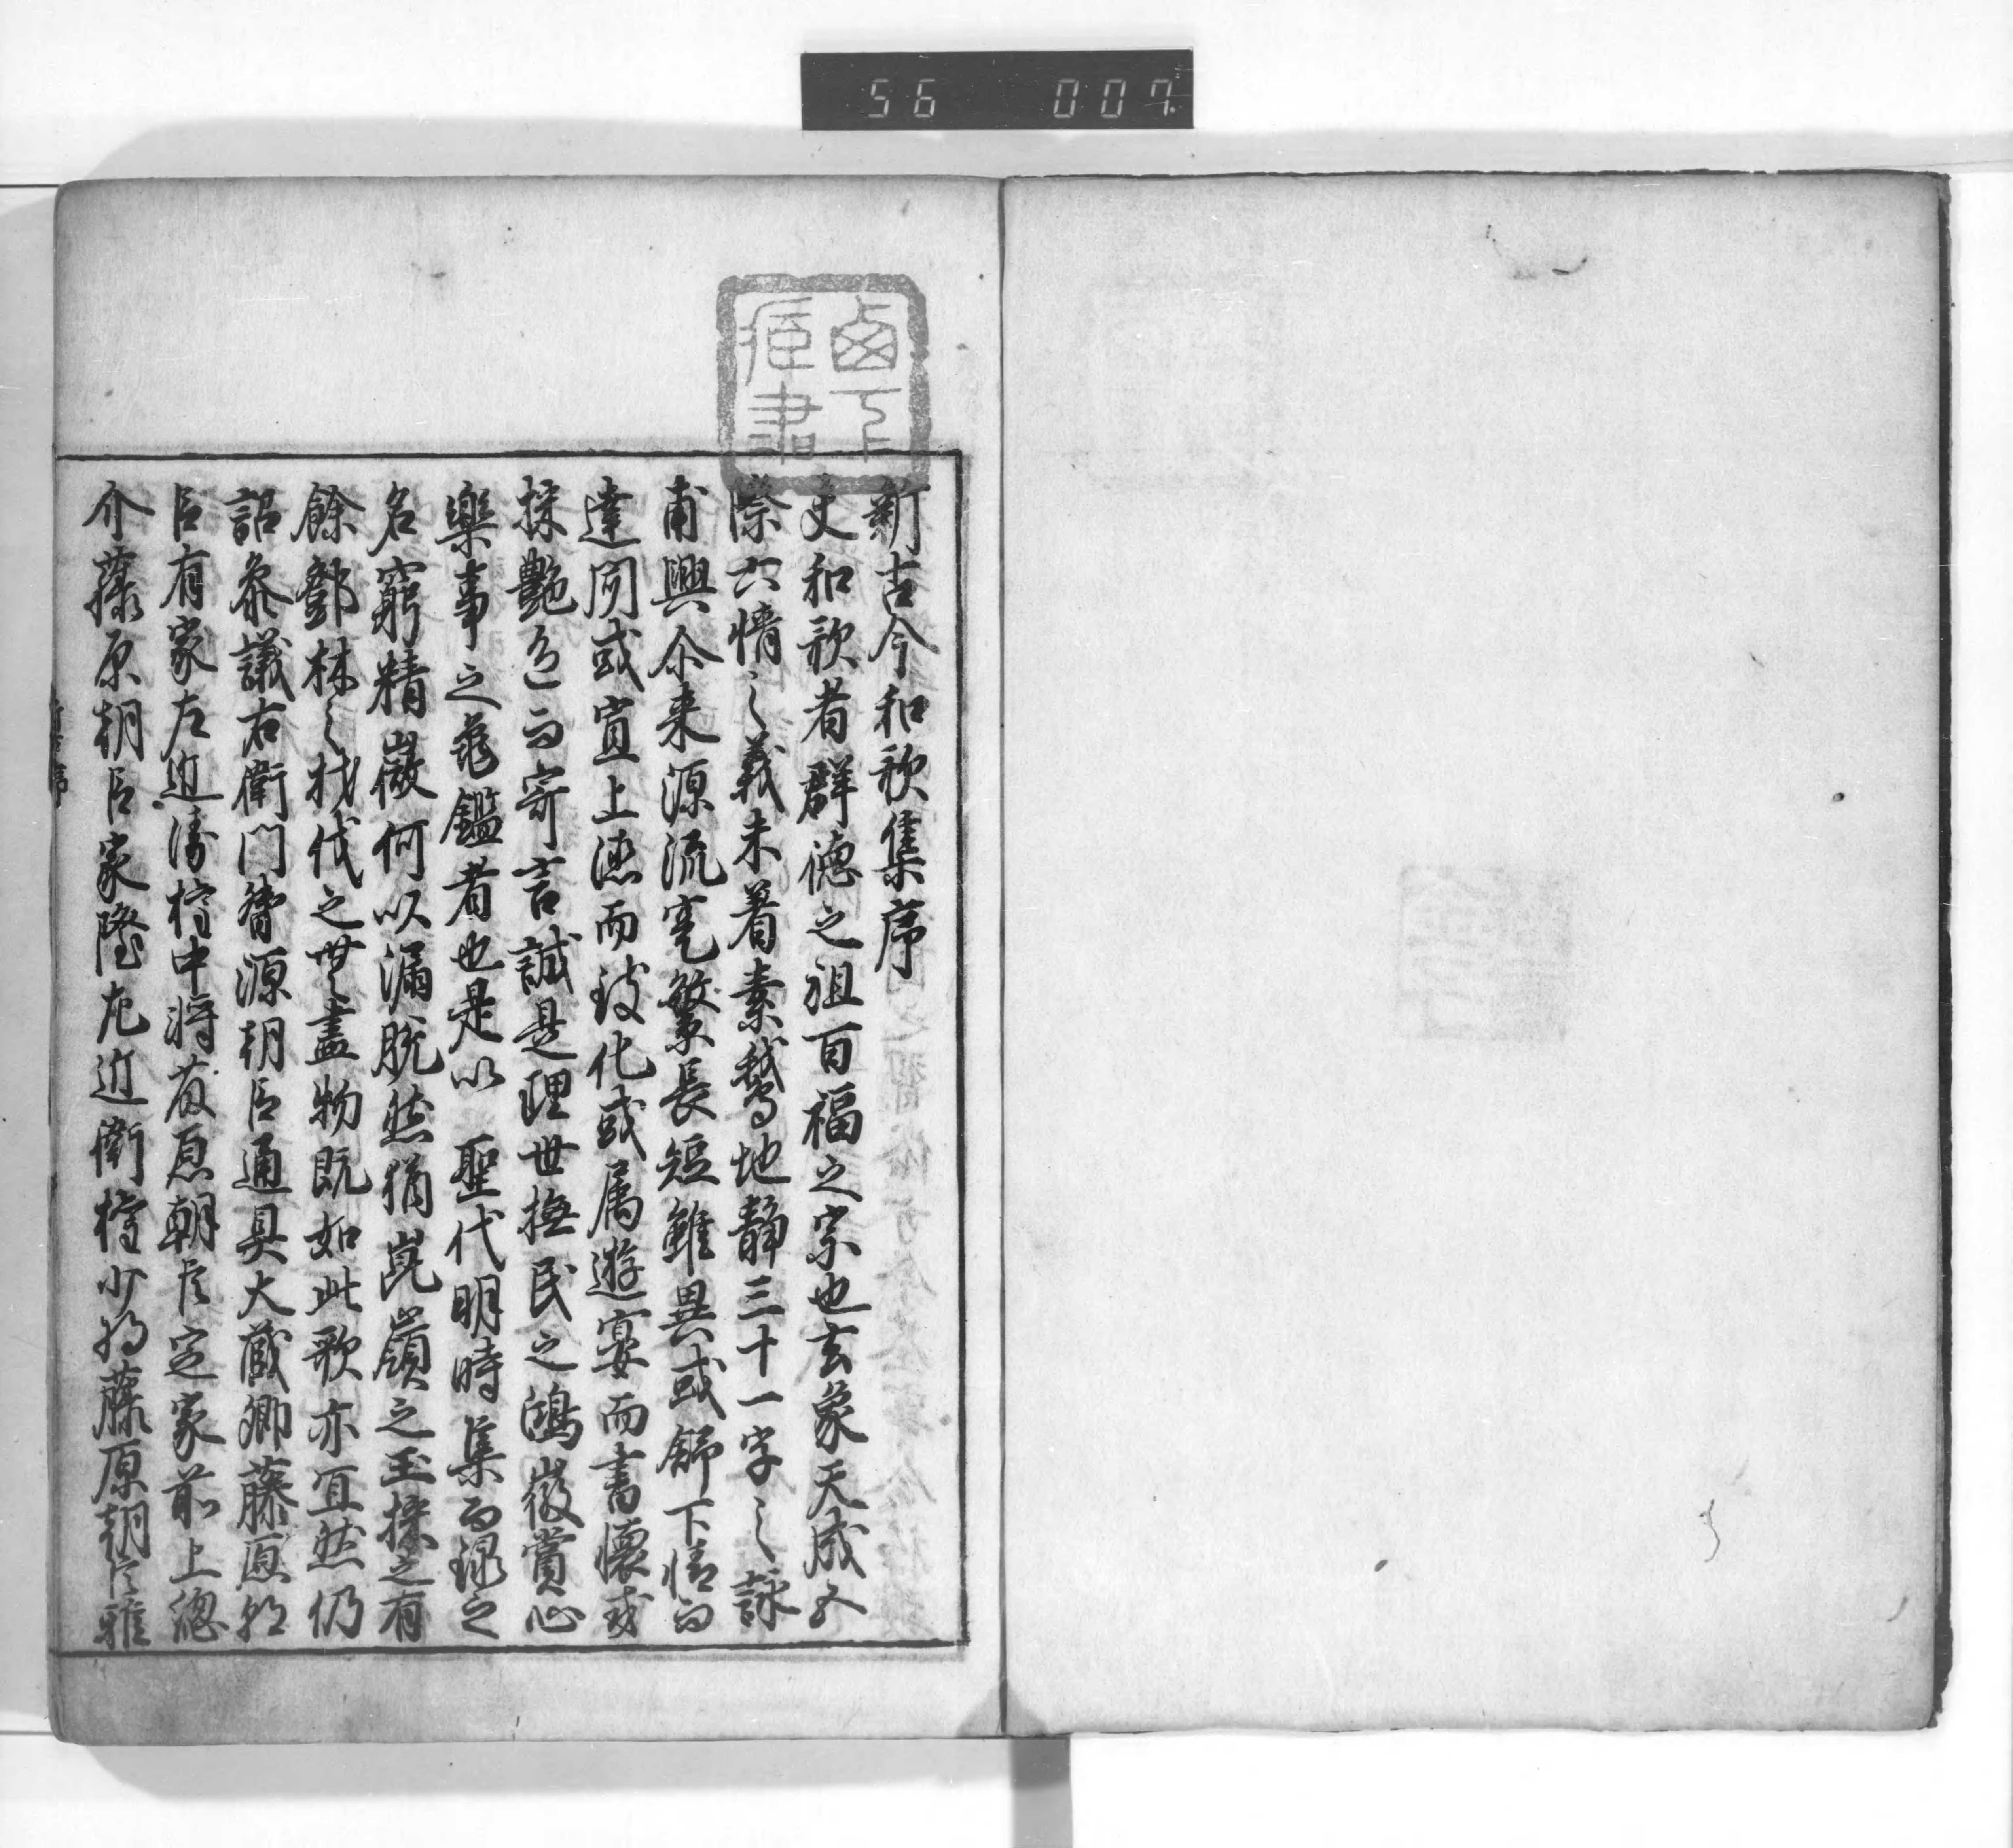 56 007
新古今和歌集序
夫和歌者群徳之祖百福之宗也玄象天成五
際六情之義未著素鵞地静三十一字之詠
甫興尓来源流寔繁長短雖異或舒下情而
達聞或宣上徳而致化或属遊宴而書懐或
採艶色而寄言誠是理世撫民之鴻徽賞心
楽事之亀鑑者也是以 聖代明時集而録之
各窮精微何以漏脱然猶崑嶺之玉採之有
餘鄧林之材伐之無盡物既如此歌亦宜然仍
詔参議右衛門督源朝臣通具大蔵卿藤原朝
臣有家左近衛権中将藤原朝臣定家前上総
介藤原朝臣家隆左近衛権少将藤原朝臣雅